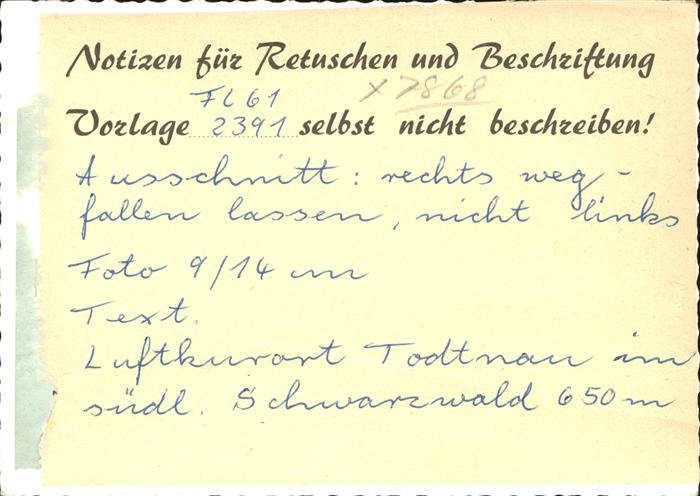 Notizen für Retuschen und Beschriftung
FL 61 x 7868
Vorlage 2391 selbst nicht beschreiben!
Ausschnitt: rechts weg-
fallen lassen, nicht links
Foto 9/14 cm
Text.
Luftkurort Todtnau im
südl. Schwarzwald 650 m